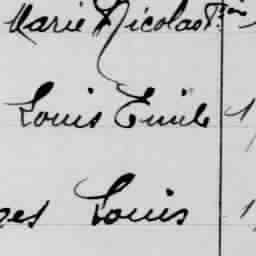 Marie Nicolas
Louis Emile
es Louis